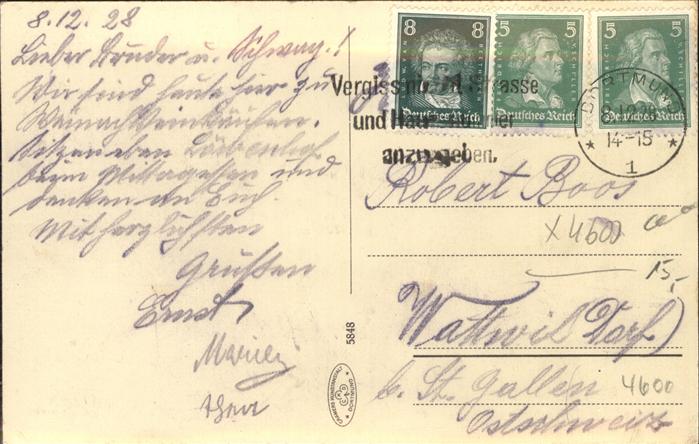 8.12.28
Lieber Bruder u. Schwag.!
Wir sind heute hier zu
Weinachtseinkäufen.
Sitzen eben
beim Mittagessen und
denken an Euch.
Mit herzlichsten
Grüßen
Ernst
8 8
Deutsches Reich
5 5
Deutsches Reich
5 5
Deutsches Reich
Vergiss nicht Strasse
und Haus
anzugeben.
DORTMUND
8.12.28
14-15
* 1 *
Robert Boos
x 4600
15,-
Wattwil Dorf
b. St. Gallen
4600
Ostschweiz
5848
DORTMUND